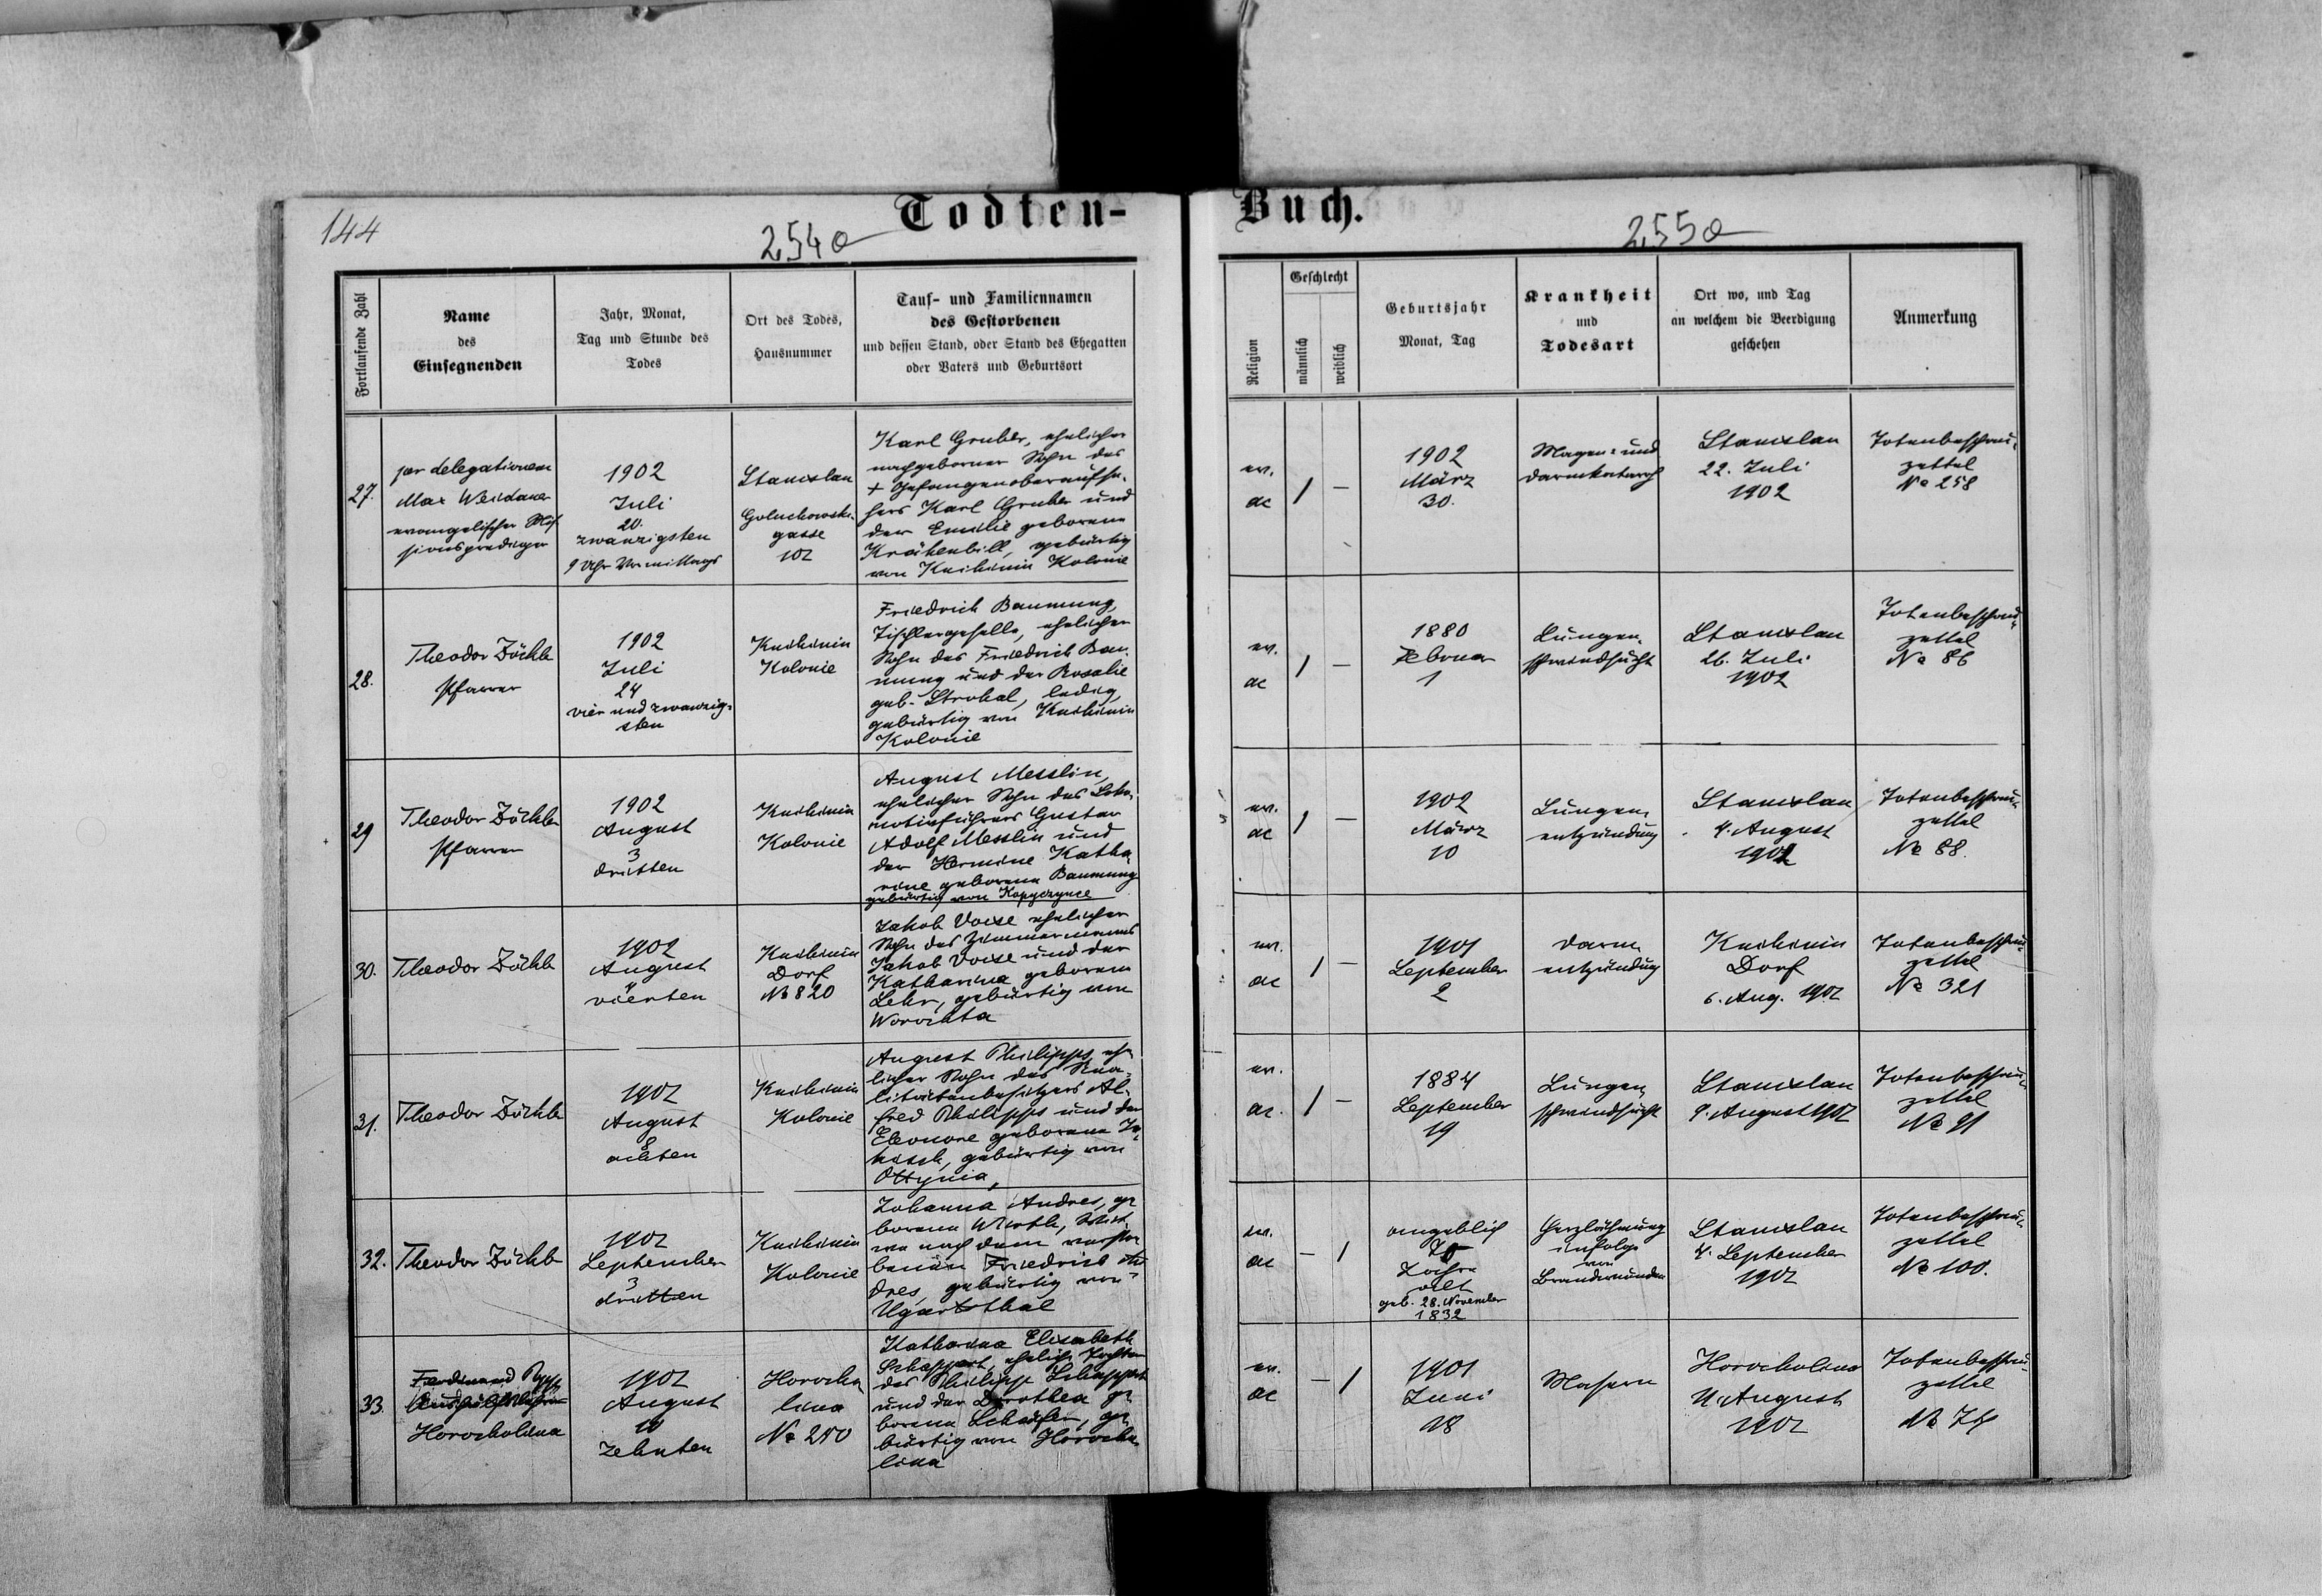 144
254a
Todten-
Buch.
255a
Fortlaufende Zahl
Name
des
Einsegnenden
Jahr, Monat,
Tag und Stunde des
Todes
Ort des Todes,
Hausnummer
Tauf- und Familiennamen
des Gestorbenen
und dessen Stand, oder Stand des Ehegatten
oder Vaters und Geburtsort
Religion
Geschlecht
männlich
weiblich
Geburtsjahr
Monat, Tag
Krankheit
und
Todesart
Ort wo, und Tag
an welchem die Beerdigung
geschehen
Anmerkung
27.
per delegationem
Max Weidauer
evangelischer Mis
sionsprediger
1902
Juli
20.
zwanzigsten
9 Uhr Vormittags
Stanislau
Goluchowski-
gasse
102
Karl Gruber, ehelicher
nachgeborner Sohn des
+ Gefangenoberaufse-
hers Karl Gruber und
der Emilie geborene
Krähenbill, gebürtig
von Knihinin Kolonie
ev.
ac
1
–
1902
März
30.
Magen- und
Darmkatarrh
Stanislau
22. Juli
1902
Totenbeschau-
zettel
No 258
28.
Theodor Zöckler
Pfarrer
1902
Juli
24
vier und zwanzig-
sten
Knihinin
Kolonie
Friedrich Baumung,
Tischlergeselle, ehelicher
Sohn des Friedrich Bau-
mung und der Rosalie
geb. Strohal, ledig,
gebürtig von Knihinin
Kolonie
ev.
ac
1
–
1880
Februar
1
Lungen-
schwindsucht
Stanislau
26. Juli
1902
Totenbeschau-
zettel
No 86
29
Theodor Zöckler
Pfarrer
1902
August
3
dritten
Knihinin
Kolonie
August Messlin,
ehelicher Sohn des Loko-
motivführers Gustav
Adolf Messlin und
der Hermine Katha-
rine geborene Baumung
gebürtig von Kopyczynce
ev.
ac
1
–
1902
März
10
Lungen-
entzündung
Stanislau
4. August
1902
Totenbeschau-
zettel
No 88.
30.
Theodor Zöckler
1902
August
4
vierten
Knihinin
Dorf
No 820
Jakob Voise ehelicher
Sohn des Zimmermanns
Jakob Voise und der
Katharina geborene
Lehr, gebürtig von
Worochta
ev.
ac
1
–
1901
September
2
Darm-
entzündung
Knihinin
Dorf
6. Aug. 1902
Totenbeschau-
zettel
No 321
31.
Theodor Zöckler
1902
August
8
achten
Knihinin
Kolonie
August Philipps, ehe-
licher Sohn des Rea-
litätenbesitzers Al-
fred Philipps und der
Eleonore geborene
gebürtig von
Ottynia,
ev.
ac.
1
–
1884
September
19
Lungen-
schwindsucht
Stanislau
9. August 1902
Totenbeschau-
zettel
No 91
32.
Theodor Zöckler
1902
September
3
dritten
Knihinin
Kolonie
Johanna Andres, ge
borene Wirth, Witt-
we nach dem verstor
benen Friedrich An
dres, gebürtig von
Ugartsthal
ev.
ac
–
1
angeblich
70
Jahre
alt
geb. 28. November
1832
Herzlähmung
infolge
von
Brandwunden
Stanislau
4. September
1902
Totenbeschau-
zettel
No 100.
33.
Ferdinand
Horocholina
1902
August
10
zehnten
Horocho
lina
No 250
Katharina Elisabeth
Schappert, eheliche Tochter
des Philipp Schappert
und der Dorothea ge
borene Schäfer, ge
bürtig von Horocho
lina
ev.
ac
–
1
1901
Juni
18
Masern
Horocholina
11. August
1902
Totenbeschau-
zettel